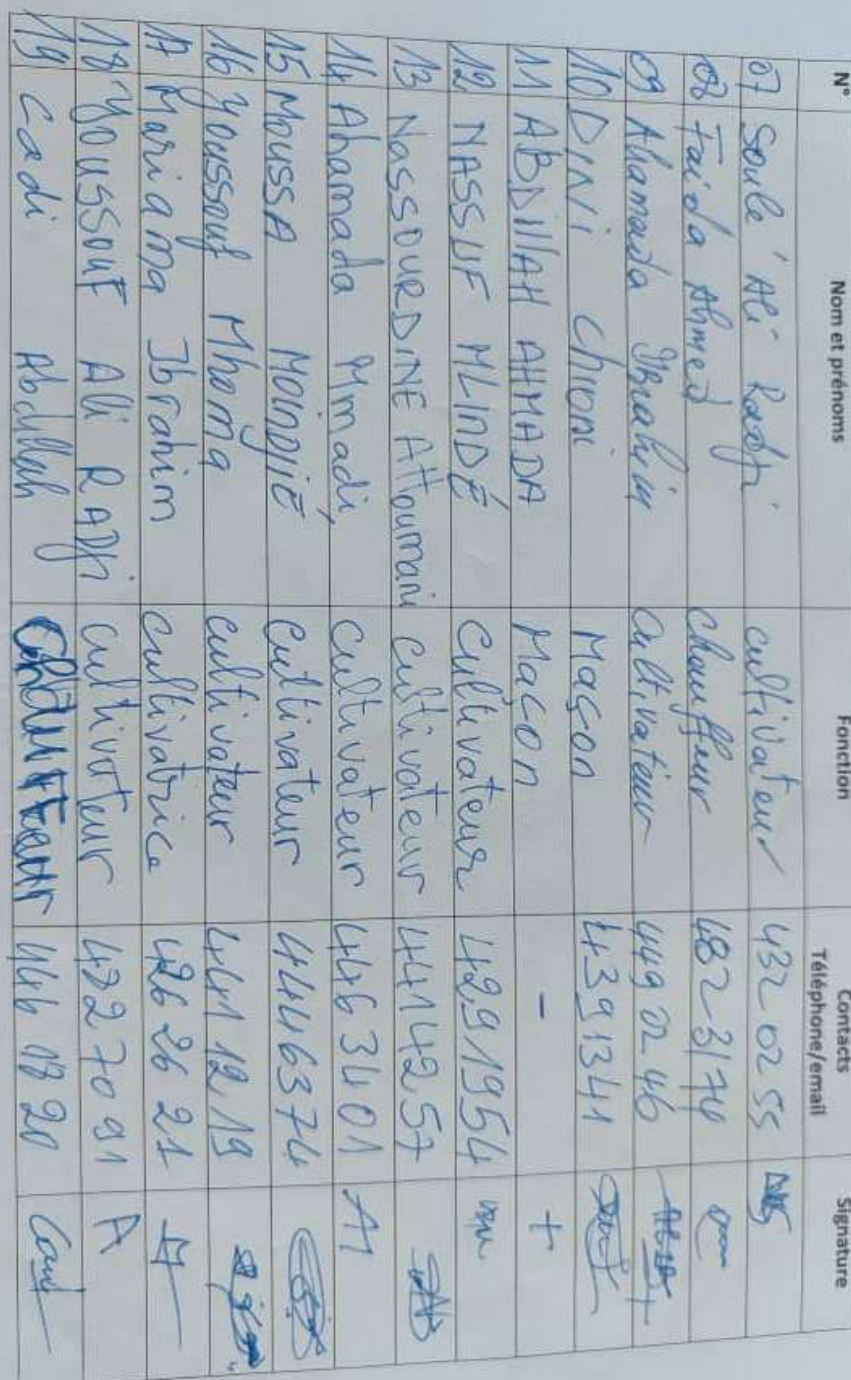 N° Nom et prénoms Fonction Contacts Téléphone/email Signature
07 Soulé Ali Radji cultivateur 432 02 55
08 Faida Ahmed chauffeur 482 31 74
09 Ahamada Ibrahim cultivateur 449 02 46
10 DINI Chioni Maçon 439 1341
11 ABDILLAH AHMADA Maçon - +
12 NASSUF MLINDÉ Cultivateur 429 1954
13 NASSOURDINE Attoumani cultivateur 441 42 57
14 Ahamada Mmadi cultivateur 446 34 01 A1
15 Moussa MOINDJIÉ Cultivateur 444 63 74
16 Youssouf Mhoma cultivateur 441 12 19
17 Mariama Ibrahim cultivatrice 426 26 21
18 YOUSSOUF Ali RADJI cultivateur 422 70 91 A
19 Cadi Abdillah 446 18 20